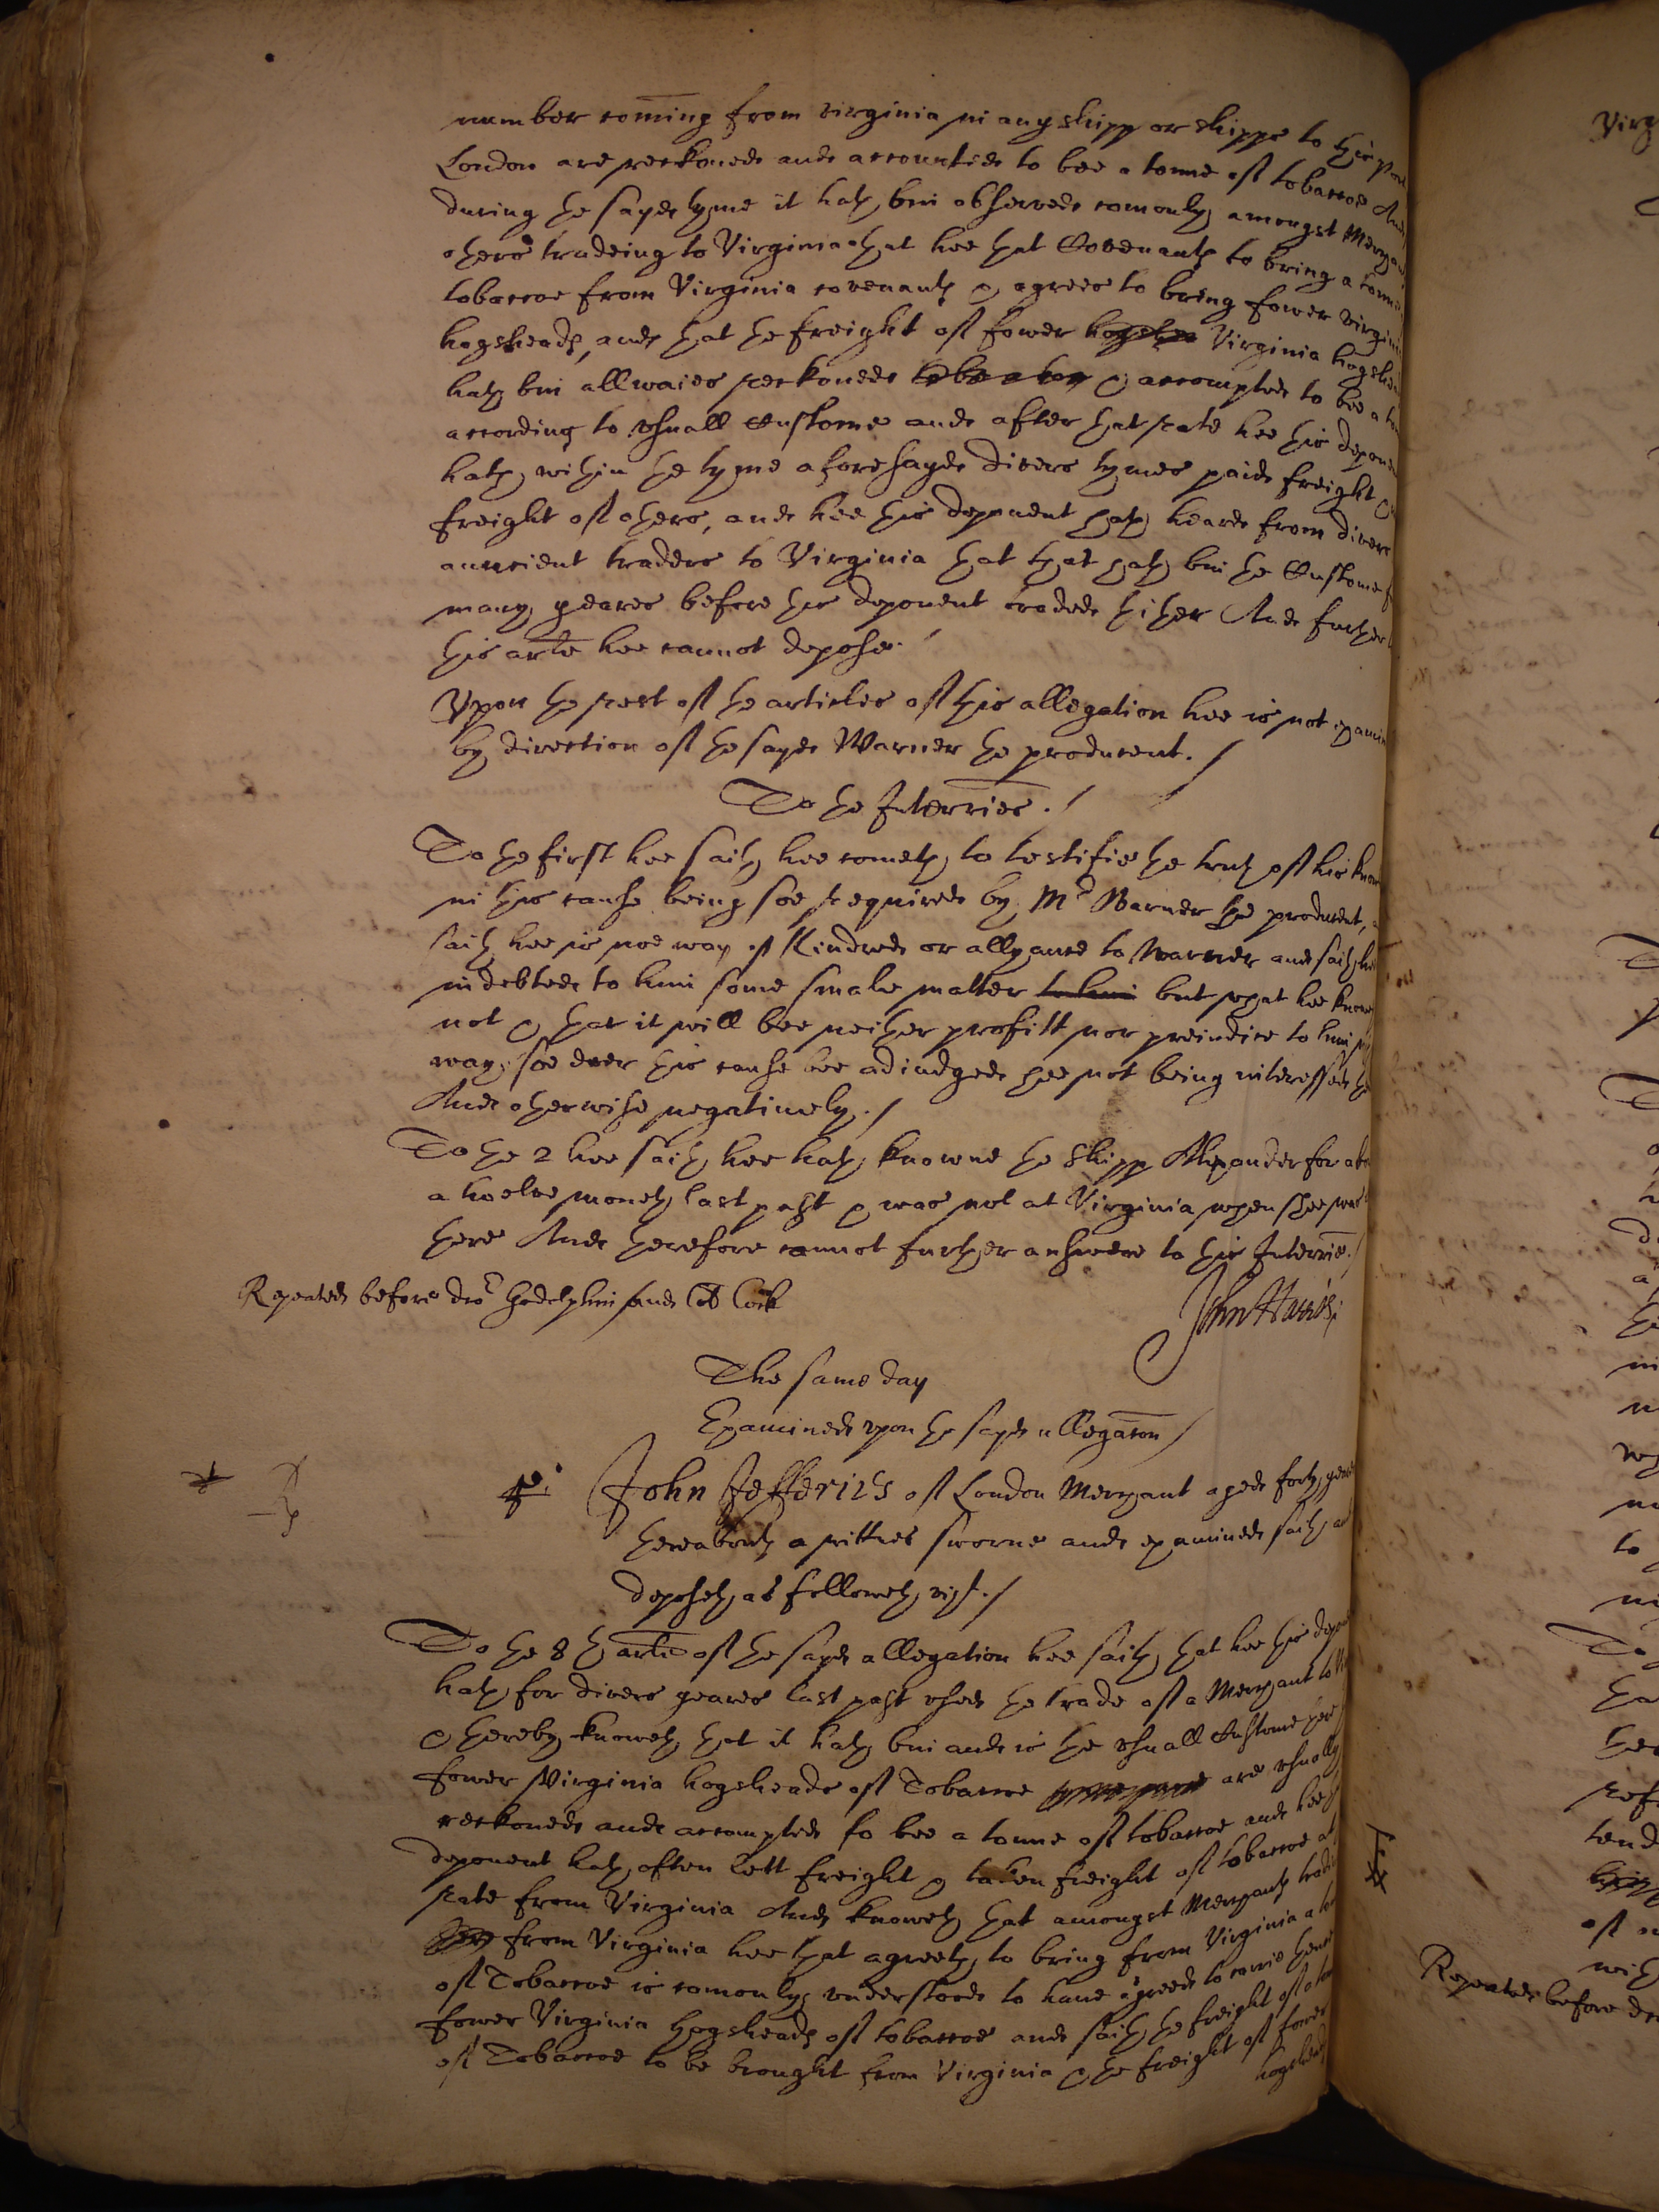 number coming from virginia in any shipp or shipps to this Port
London are reckoned and accounted to bee a tonne of tobaccoe And
during the sayd tyme it hath bin observed comonly amongst Merchants
others tradeing to Virginia that hee that Covenants to bring a tonne
tobaccoe from Virginia covenants & agrees to bring fower virginia
hogsheads, and that the freight of fower hogshea Virginia hogsheads
hath bin allwaies reckoned to be a ton & accompted to bee a ton
according to usuall Custome and after that rate hee this deponent
hath within the tyme aforesayd divers tymes paid freight &
freight of others, and hee this deponent hath heard from divers
auncient traders to Virginia that that hath bin the Custome
many yeares before this deponent traded thither And further
this arle hee cannot depose./
Upon the rest of the articles of this allegation hee is not examined
by direction of the sayd Warner the producent./
To the Interries./
To the first hee saith hee cometh to testifie the truth of his know
in this cause being soe required by Mr Warner the producent,
saith hee is noe way of Kindred or allyance to Warner and saith hee
indebted to him some smale matter to him but what hee knoweth
not & that it will bee neither profitt nor preiudice to him
way soe ever this cause bee adiudged hee not being interessed
And otherwise negatively./
To the 2 hee saith hee hath knowne the Shipp Alexander for about
a twelve moneth last past & was not at Virginia when shee was
there And therefore cannot further answere to this Interrie./
Repeated before drs Godolphin and Col Cock
John Harris
The same day
Examined upon the sayd allegacon/
John Jefferies of London Merchant aged forty yeares
thereabouts a wittnes sworne and examined saith and
deposeth as followeth vizt./
To the 8th arle of the sayd allegation hee saith that hee this deponent
hath for divers yeares last past used the trade of a Merchant to
& thereby knoweth that it hath bin and is the usuall Custome
fower Virginia hogsheads of Tobaccoe are usually
reckoned and accompted to bee a tonne of tobaccoe and hee
deponent hath often lett freight & taken freight of tobaccoe at
rate from Virginia And knoweth that amongst Merchants trading
from Virginia hee that agreeth to bring from Virginia a ton
of Tobaccoe is comonly understood to have agreed to carrie thence
fower Virginia hogsheads of tobaccoe and saith the freight of a ton
of Tobaccoe to be brought from Virginia & the freight of fower
hogsheads
Virg
Repeated before drs